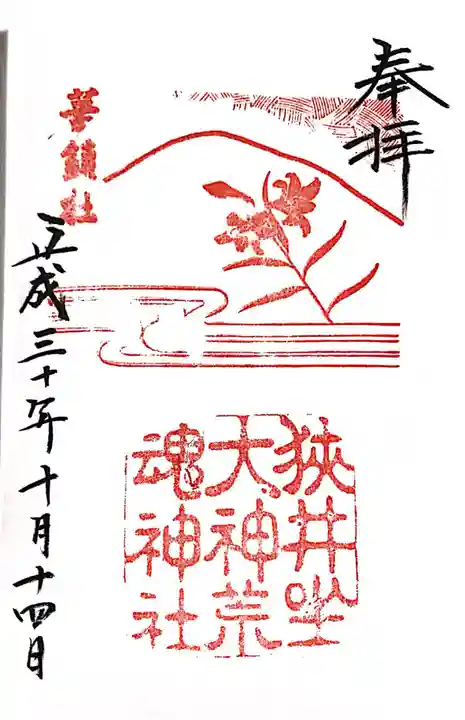 奉拝
狭井坐
大神荒
魂神社
華鎮社
平成三十年十月十四日